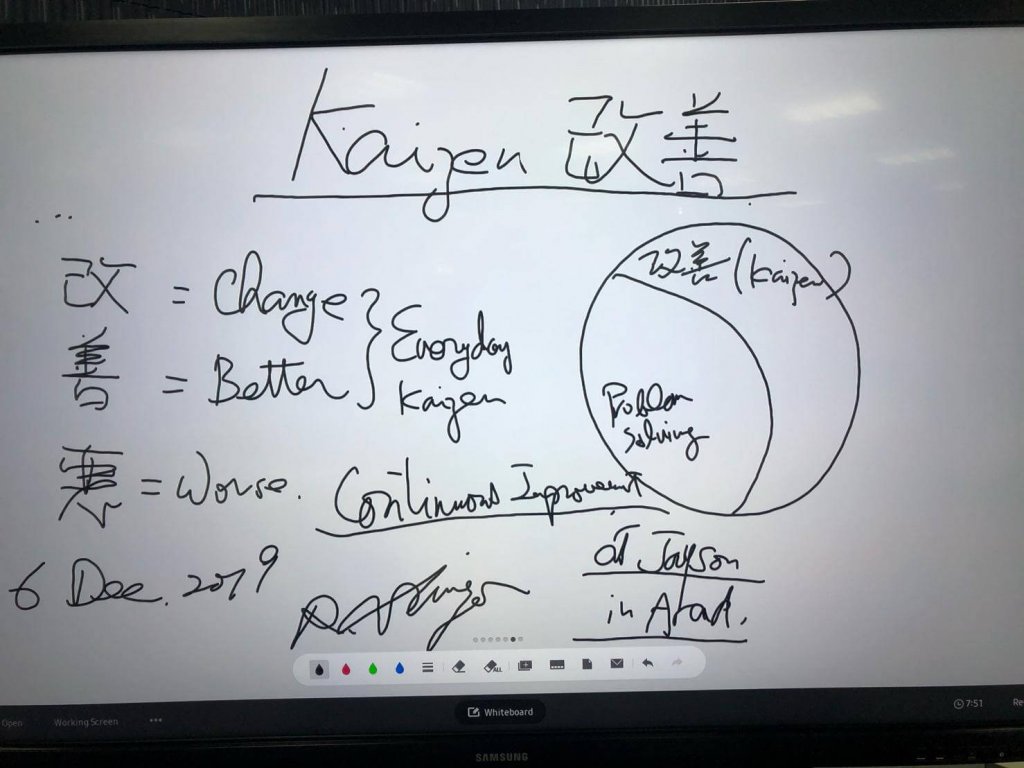 Kaizen 改善
...
改 = Change
善 = Better
Everyday
Kaizen
悪 = Worse.
Continuous Improvement
改善 (Kaizen)
Problem
Solving
6 Dec. 2019
at Jayson
in Arad.
ALL
Open
Working Screen
...
Whiteboard
7:51
Re
SAMSUNG